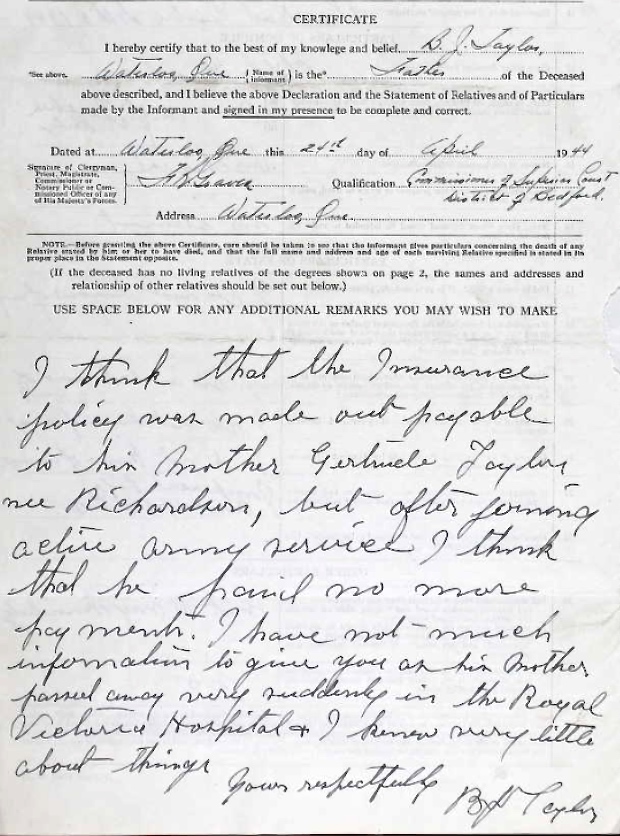 CERTIFICATE
I hereby certify that to the best of my knowlege and belief B. J. Taylor,
*See above. Waterloo, Que { Name of Informant } is the* Father of the Deceased
above described, and I believe the above Declaration and the Statement of Relatives and of Particulars
made by the Informant and signed in my presence to be complete and correct.
Dated at Waterloo, Que this day of April 1944
Signature of Clergyman, Priest, Magistrate, Commissioner or Notary Public or Commissioned Officer of any of His Majesty's Forces. } Qualification Commissioner of Superior Court
District of Bedford.
Address Waterloo, Que.
NOTE.—Before granting the above Certificate, care should be taken to see that the informant gives particulars concerning the death of any
Relative stated by him or her to have died, and that the full name and address and age of each surviving Relative specified is stated in its
proper place in the Statement opposite.
(If the deceased has no living relatives of the degrees shown on page 2, the names and addresses and
relationship of other relatives should be set out below.)
USE SPACE BELOW FOR ANY ADDITIONAL REMARKS YOU MAY WISH TO MAKE
I think that the Insurance
policy was made out payable
to his Mother Gertrude Taylor
nee Richardson, but after joining
active army service I think
that he paid no more
payments. I have not much
information to give you as his Mother
passed away very suddenly in the Royal
Victoria Hospital & I knew very little
about things
Yours respectfully
Taylor